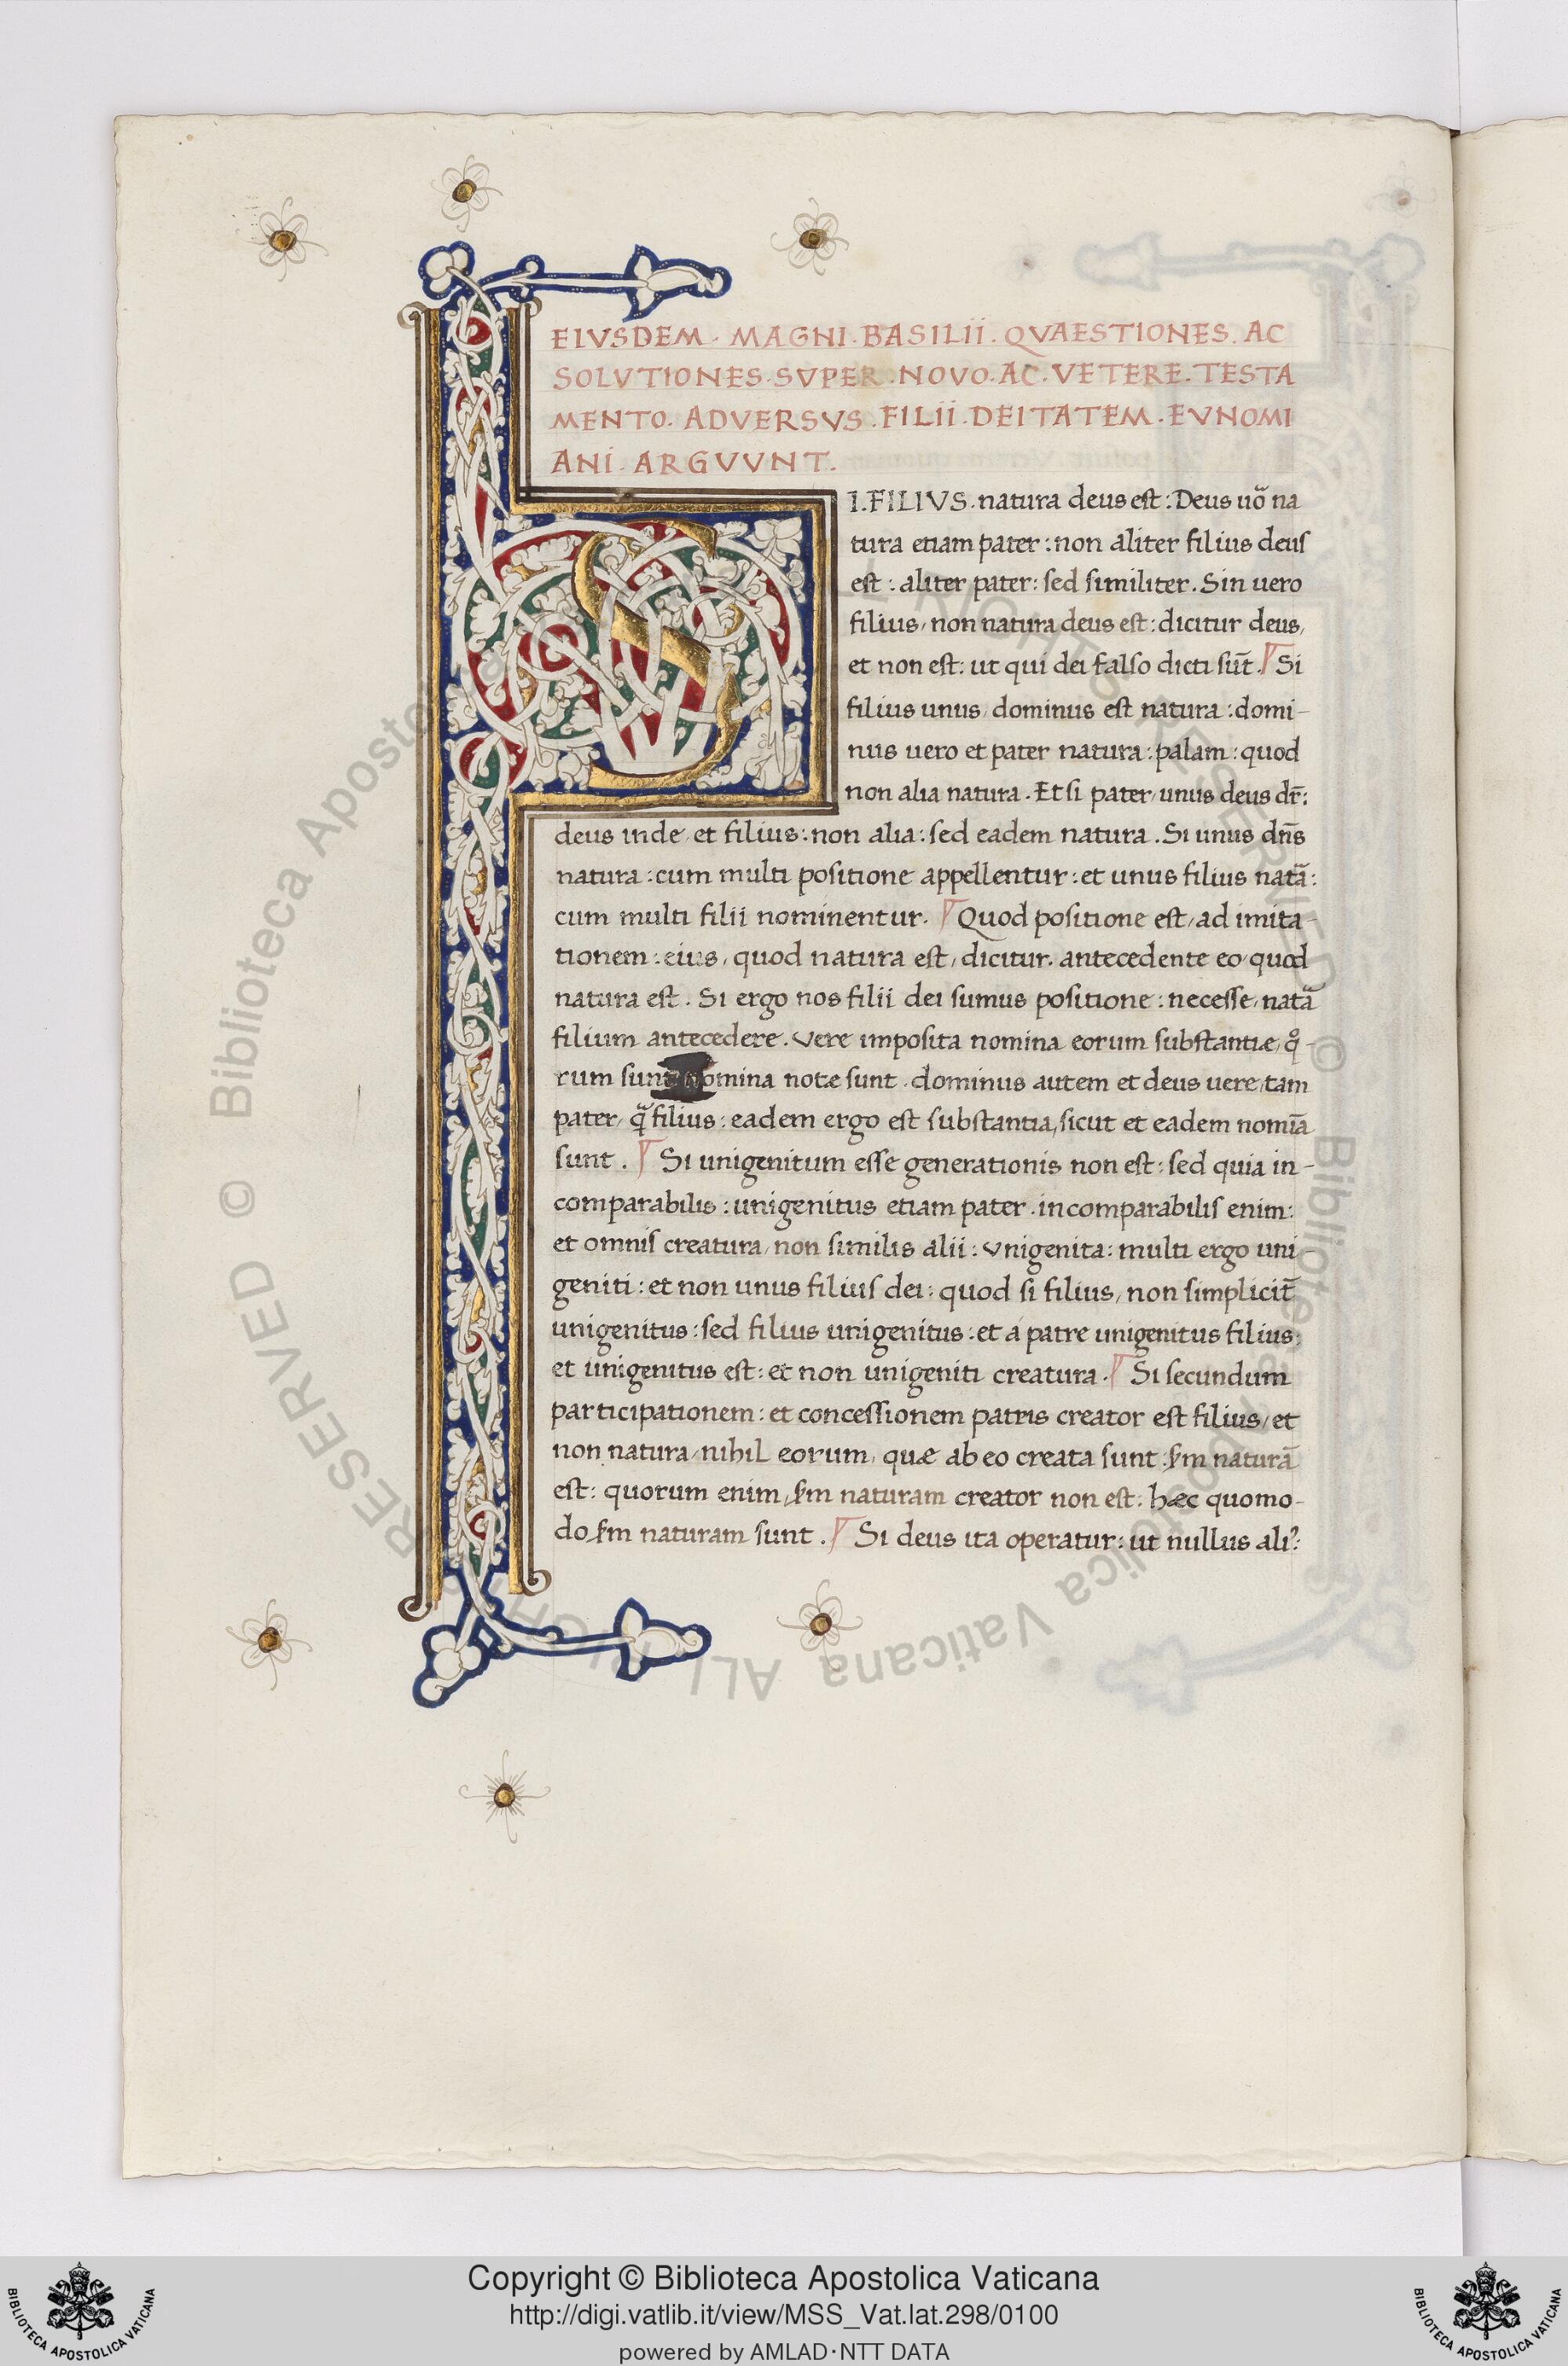 EIVSDEM · MAGNI · BASILII · QVAESTIONES · AC
SOLVTIONES · SVPER · NOVO · AC · VETERE · TESTA
MENTO · ADVERSVS · FILII · DEITATEM · EVNOMI
ANI · ARGVVNT.
S I. FILIVS. natura deus est: Deus uõ na
tura etiam pater: non aliter filius deus
est: aliter pater: sed similiter. Sin uero
filius, non natura deus est: dicitur deus,
et non est: ut qui dei falso dicti sūt. Si
filius unus, dominus est natura: domi-
nus uero et pater natura: palam: quod
non alia natura. Et si pater, unus deus dr̄:
deus inde, et filius: non alia: sed eadem natura. Si unus dn̄s
natura: cum multi positione appellentur: et unus filius natā:
cum multi filii nominentur. Quod positione est, ad imita-
tionem: eius, quod natura est, dicitur. antecedente eo, quod
natura est. Si ergo nos filii dei sumus positione: necesse, natā
filium antecedere. Vere imposita nomina eorum substantiæ, qͦ-
rum sunt nomina notæ sunt. dominus autem et deus uere, tam
pater, q̄ filius: eadem ergo est substantia, sicut et eadem nomīa
sunt. Si unigenitum esse generationis non est: sed quia in-
comparabilis: unigenitus etiam pater. incomparabilis enim:
et omnis creatura, non similis alii: Vnigenita: multi ergo uni-
geniti: et non unus filius dei: quod si filius, non simplicit̄
unigenitus: sed filius unigenitus: et á patre unigenitus filius:
et unigenitus est: et non unigeniti creatura. Si secundum
participationem: et concessionem patris creator est filius, et
non natura, nihil eorum, quæ ab eo creata sunt: s̄m naturā
est: quorum enim, s̄m naturam creator non est: hæc quomo-
do s̄m naturam sunt. Si deus ita operatur: ut nullus ali᾽:
© Biblioteca Apostolica Vaticana ALL RIGHTS RESERVED © Biblioteca Apostolica Vaticana ALL RIGHTS RESERVED
Copyright © Biblioteca Apostolica Vaticana
http://digi.vatlib.it/view/MSS_Vat.lat.298/0100
powered by AMLAD·NTT DATA
BIBLIOTECA APOSTOLICA VATICANA
BIBLIOTECA APOSTOLICA VATICANA